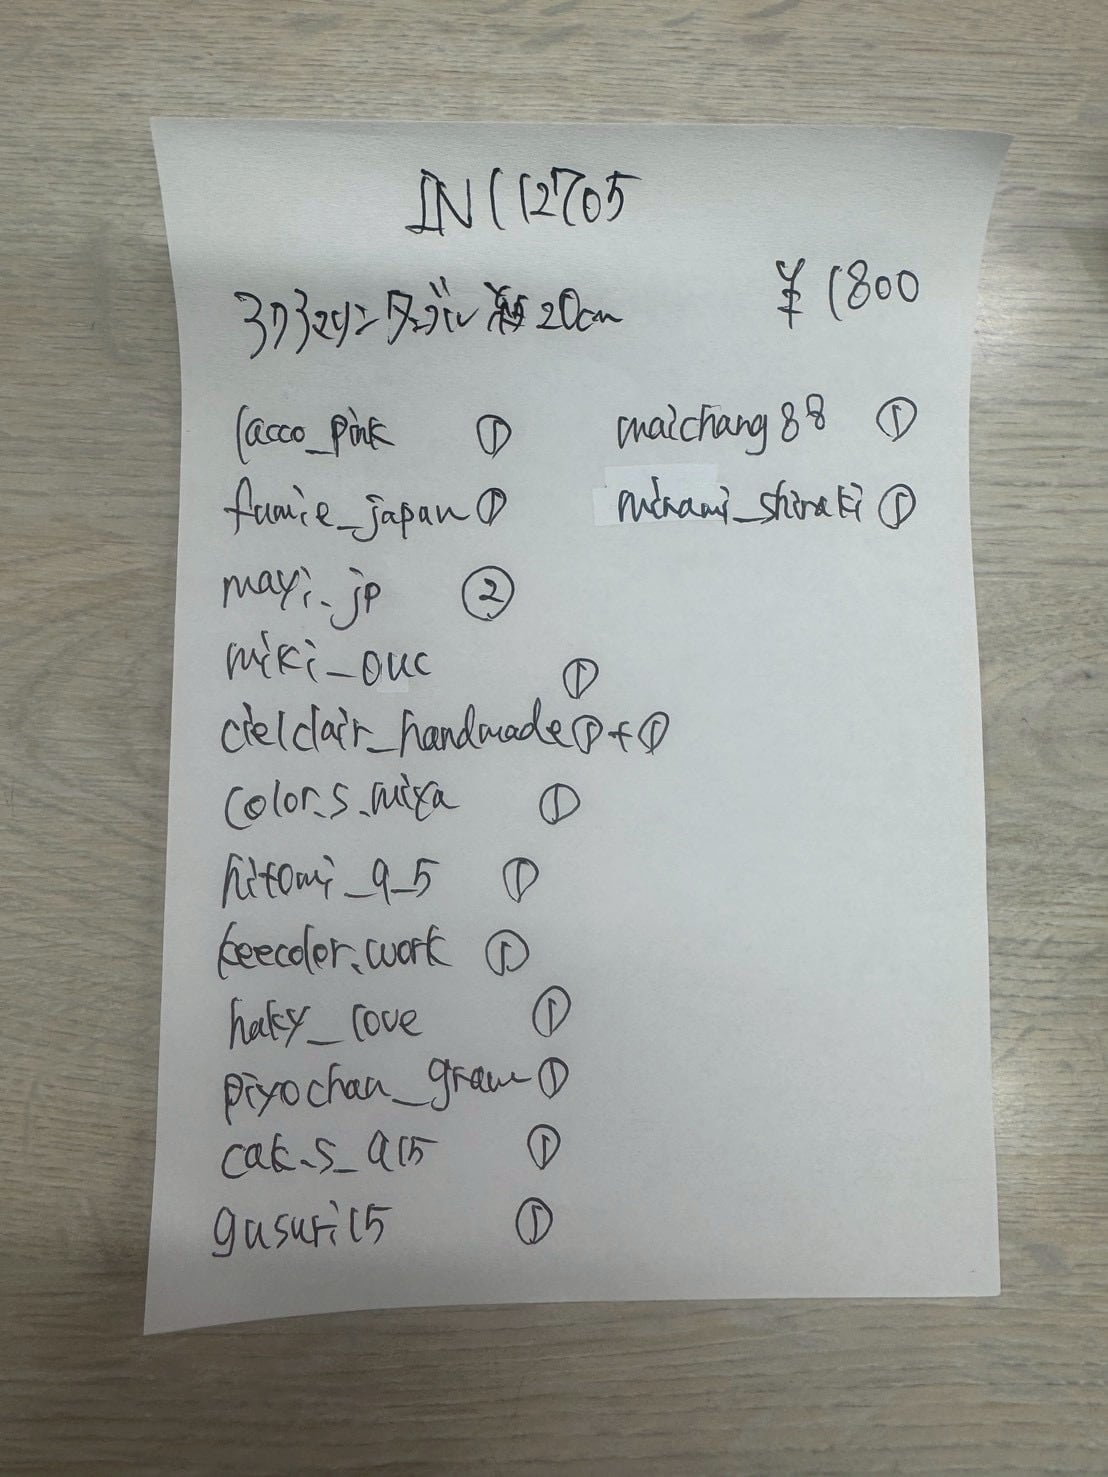 IN112705
アクアマリンタンブル 約20cm
¥1800
lacco_pink ①
fumie_japan ①
mayi._jp ②
miki_ouc ①
cielclair_handmade ①+①
color.s.miya ①
hitomi_9_5 ①
keecolor.work ①
haky_love ①
piyochan_gram ①
cak.s_915 ①
gusuri15 ①
maichang88 ①
minami_shiraki ①